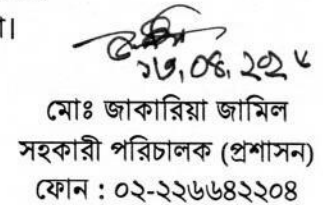 মোঃ জাকারিয়া জামিল
সহকারী পরিচালক (প্রশাসন)
ফোন : ০২-২২৬৬৪২২০৪